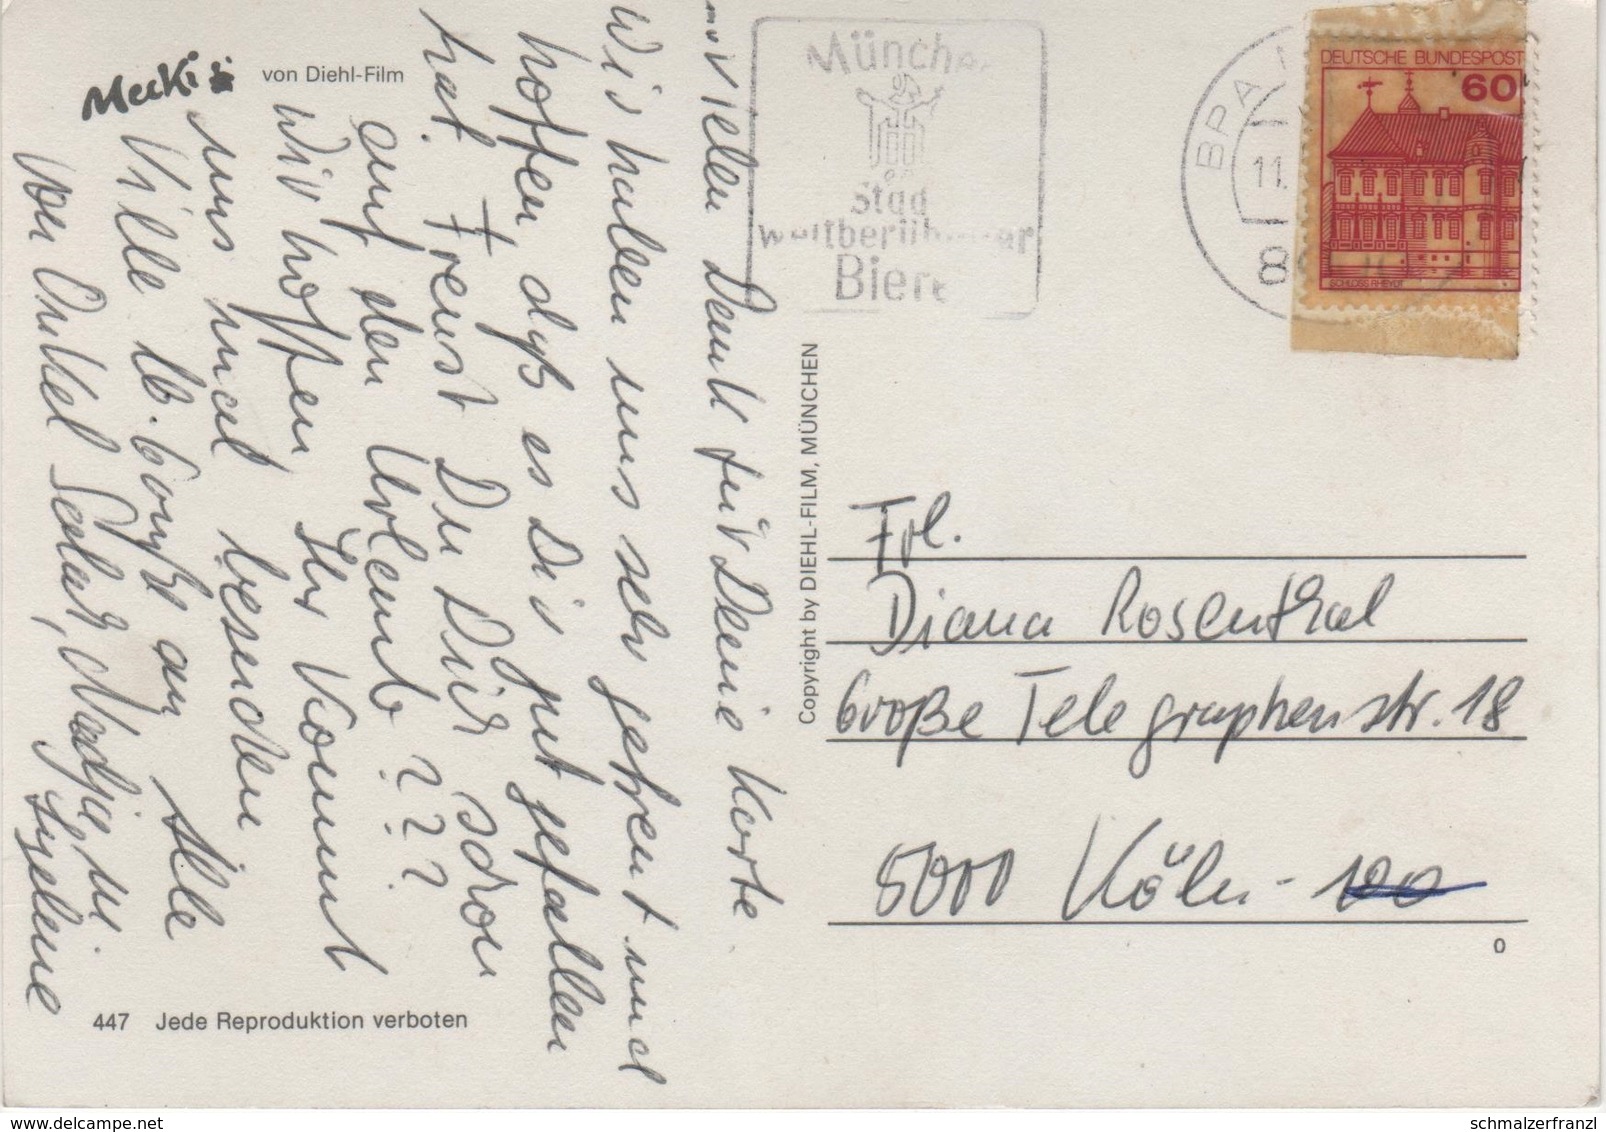 Mecki
von Diehl-Film
vielen Dank für Deine Karte.
Wir haben uns sehr gefreut und
hoffen, daß es Dir gut gefallen
hat. Freust Du Dich schon
auf den Urlaub???
Wir hoffen Ihr kommt
uns mal besuchen
Viele lb. Grüße an Alle
von Onkel Sedat, Nadja u.
447 Jede Reproduktion verboten
Copyright by DIEHL-FILM, MÜNCHEN
Münche
Stad
weltberüh
Biere
BPA
11.
8
DEUTSCHE BUNDESPOST
60
SCHLOSS RHEYDT
Frl.
Diana Rosenthal
Große Telegraphenstr. 18
5000 Köln - 1
0
schmalzerfranzl